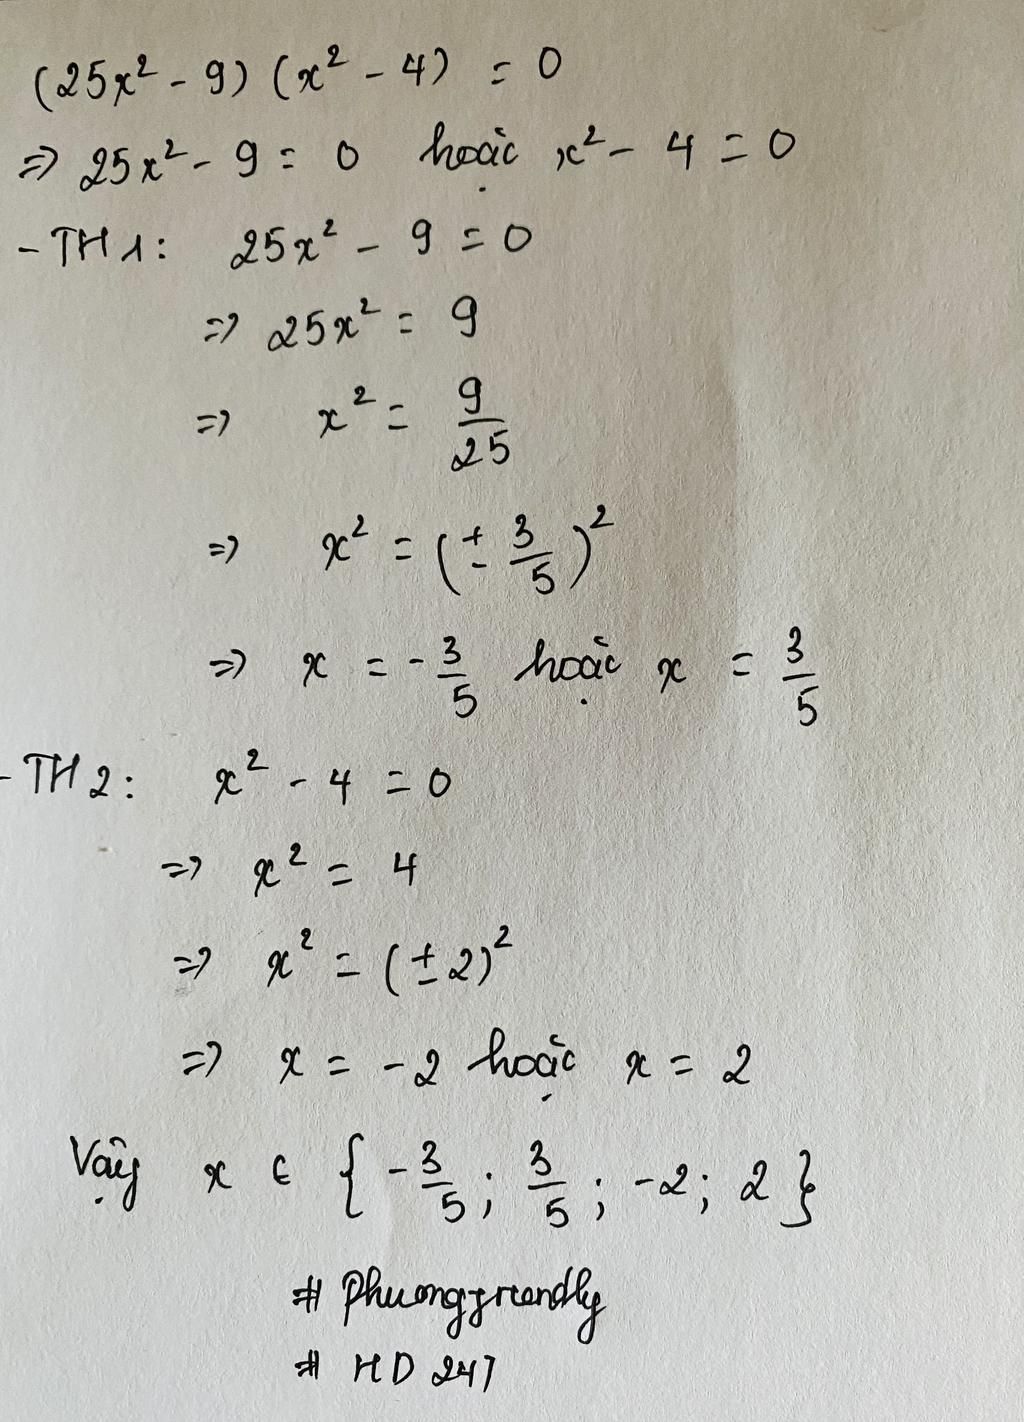 (25x² - 9) (x² - 4) = 0
=> 25x² - 9 = 0 hoặc x² - 4 = 0
- TH1: 25x² - 9 = 0
=> 25x² = 9
=> x² = 9/25
=> x² = (± 3/5)²
=> x = -3/5 hoặc x = 3/5
- TH2: x² - 4 = 0
=> x² = 4
=> x² = (±2)²
=> x = -2 hoặc x = 2
Vậy x ∈ {-3/5; 3/5; -2; 2}
# HD 247